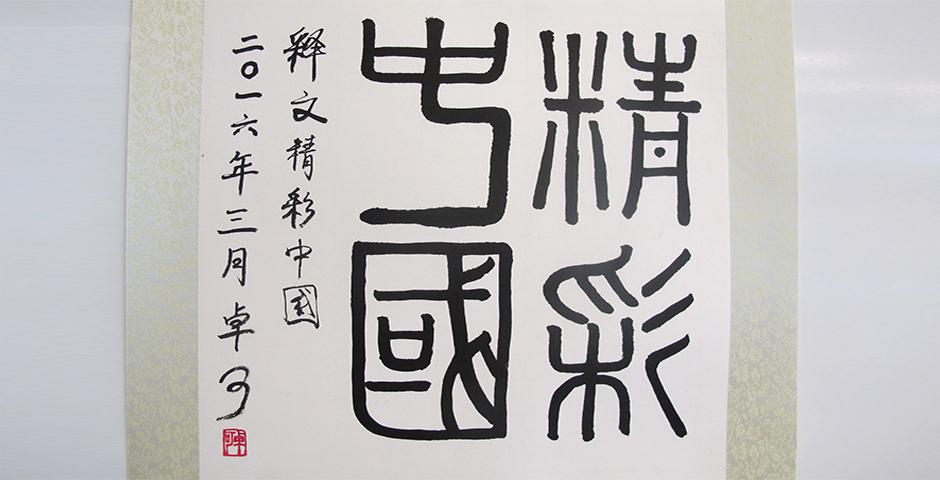 精彩
中國
释文精彩中国
二〇一六年三月卓
陳